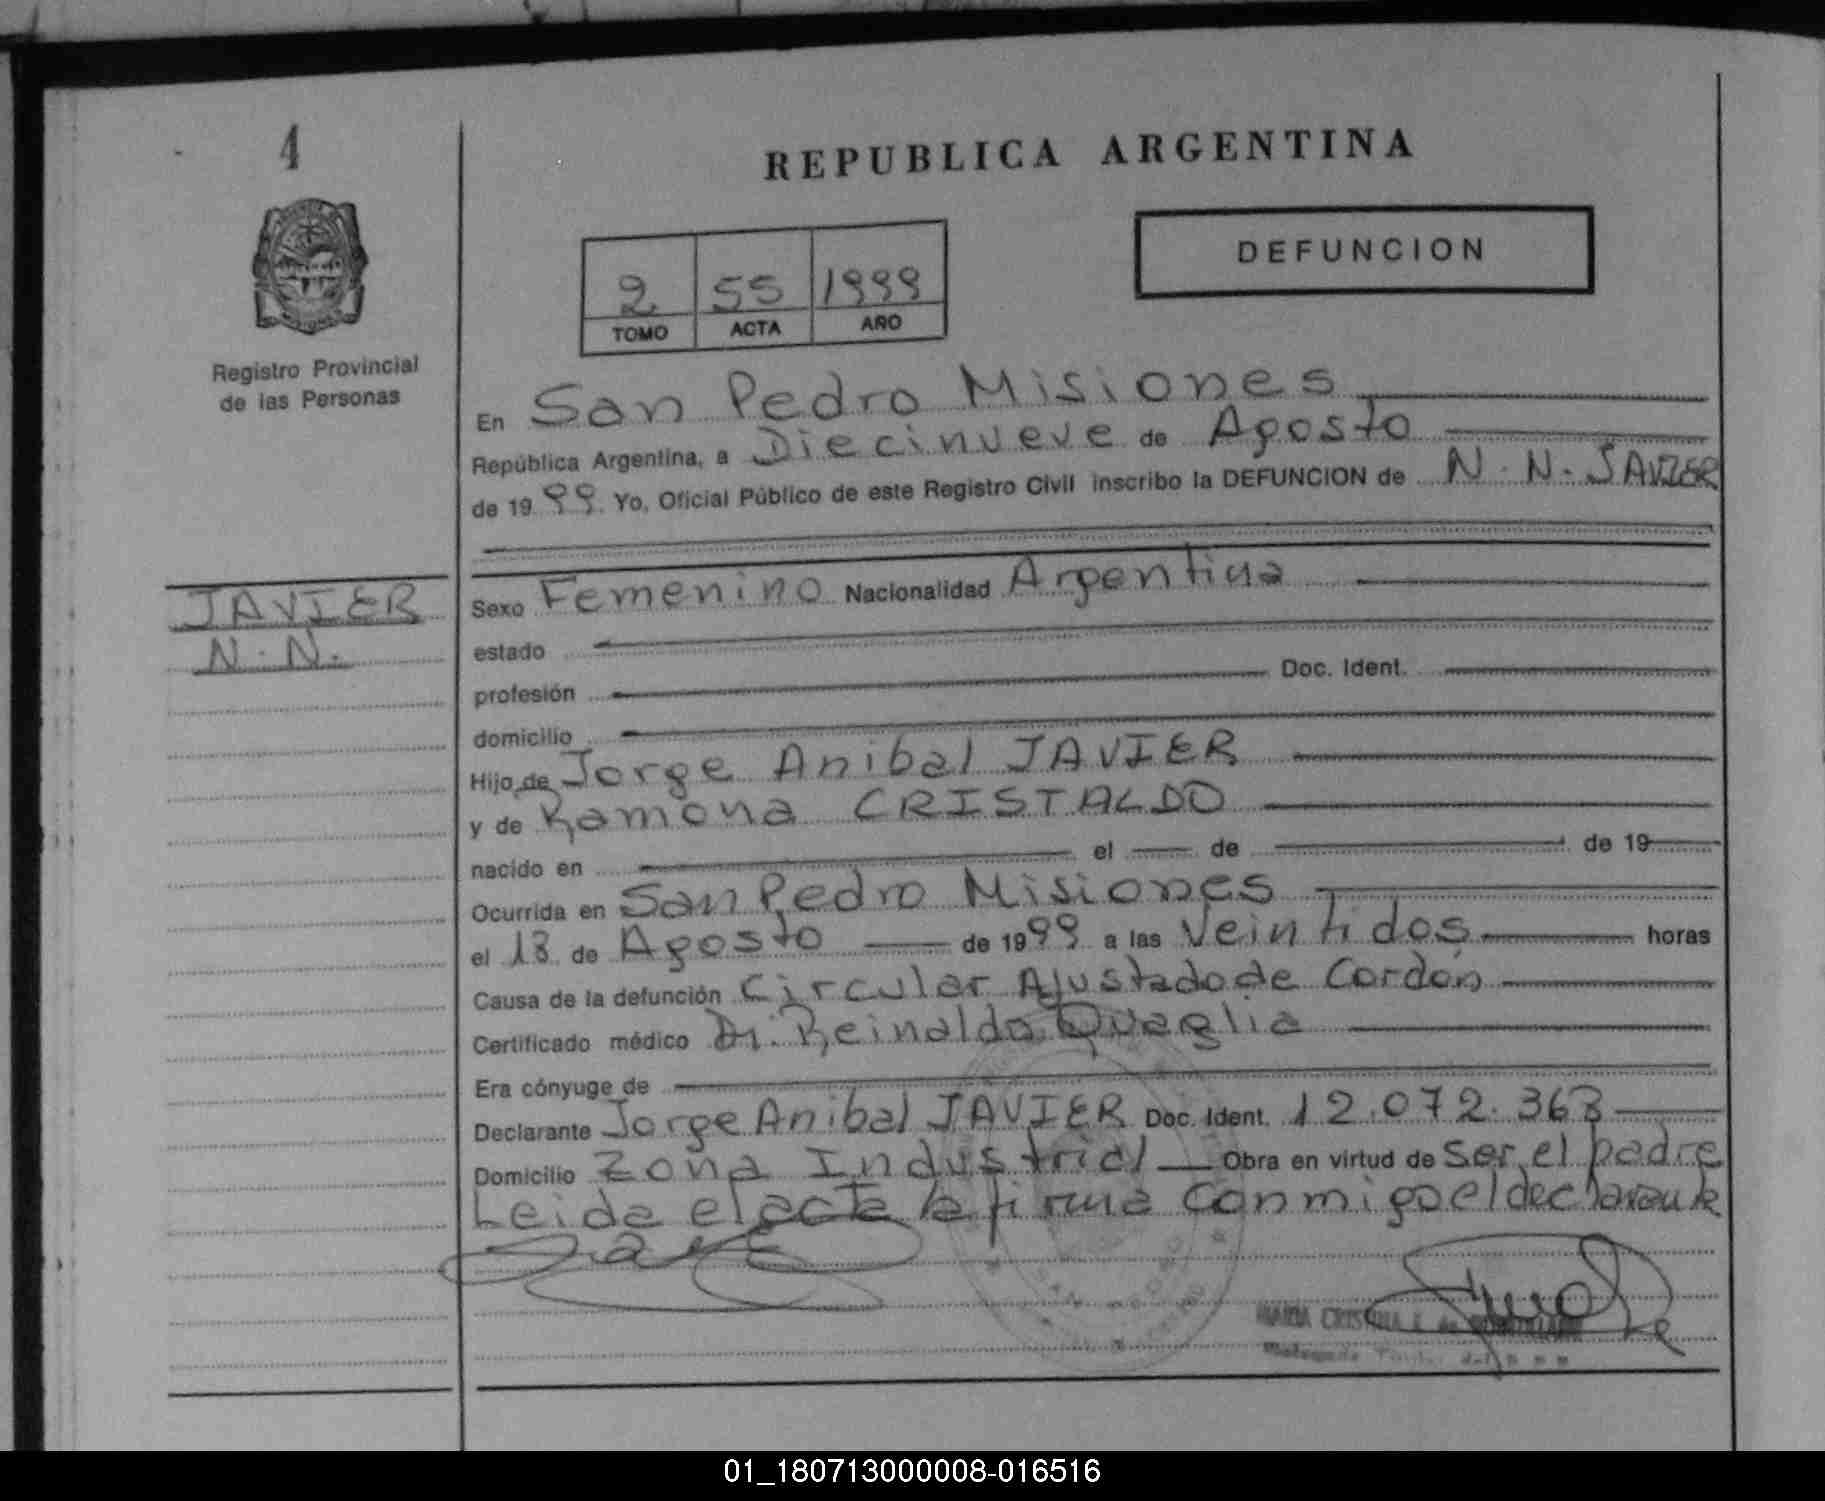 4
REPUBLICA ARGENTINA
DEFUNCION
2 55 1999
TOMO ACTA AÑO
Registro Provincial
de las Personas
En San Pedro Misiones
República Argentina, a Diecinueve de Agosto
de 1999. Yo, Oficial Público de este Registro Civil inscribo la DEFUNCION de N. N. JAVIER
JAVIER
N. N.
Sexo Femenino Nacionalidad Argentina
estado
profesión Doc. Ident.
domicilio
Hijo de Jorge Anibal JAVIER
y de Ramona CRISTALDO
nacido en el de de 19
Ocurrida en San Pedro Misiones
el 13 de Agosto de 1999 a las Veintidos horas
Causa de la defunción Circular Ajustado de Cordón
Certificado médico Dr. Reinaldo Quaglia
Era cónyuge de
Declarante Jorge Anibal JAVIER Doc. Ident. 12.072.363
Domicilio Zona Industrial Obra en virtud de ser el padre
Leida el acta la firma conmigo el declarante
MARIA CRISTINA
01_180713000008-016516